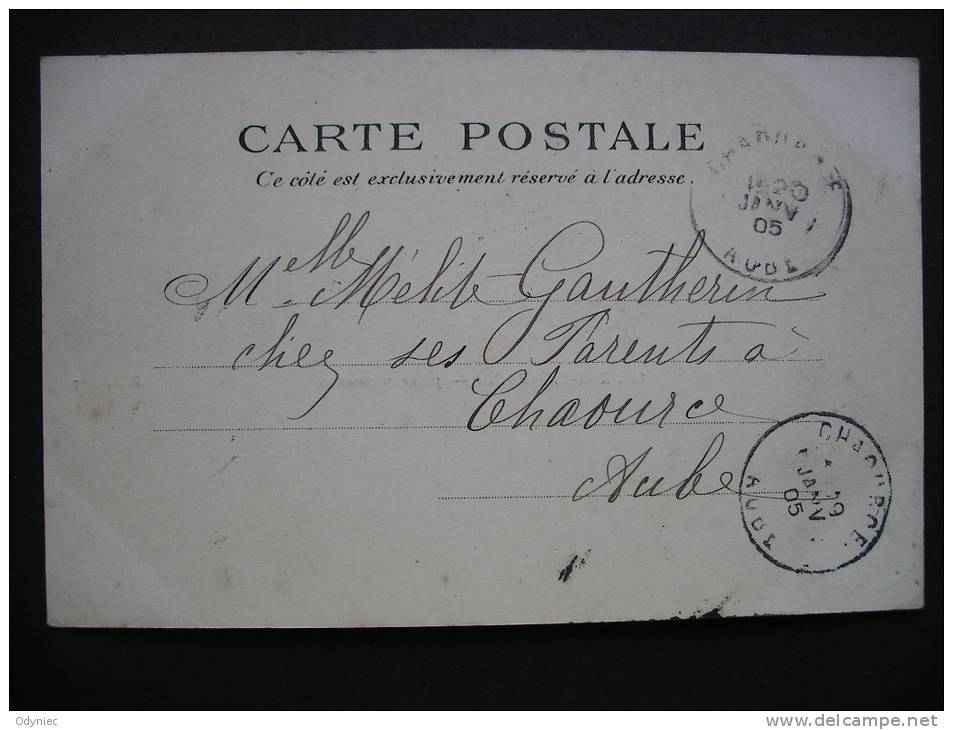 CARTE POSTALE
Ce côté est exclusivement réservé à l'adresse.
CHAOURCE
JANV
05
AUBE
Melle Mélite Gautherin
chez ses Parents à
Chaource
Aube
CHAOURCE
19
JANV
05
AUBE
Odyniec
www.delcampe.net